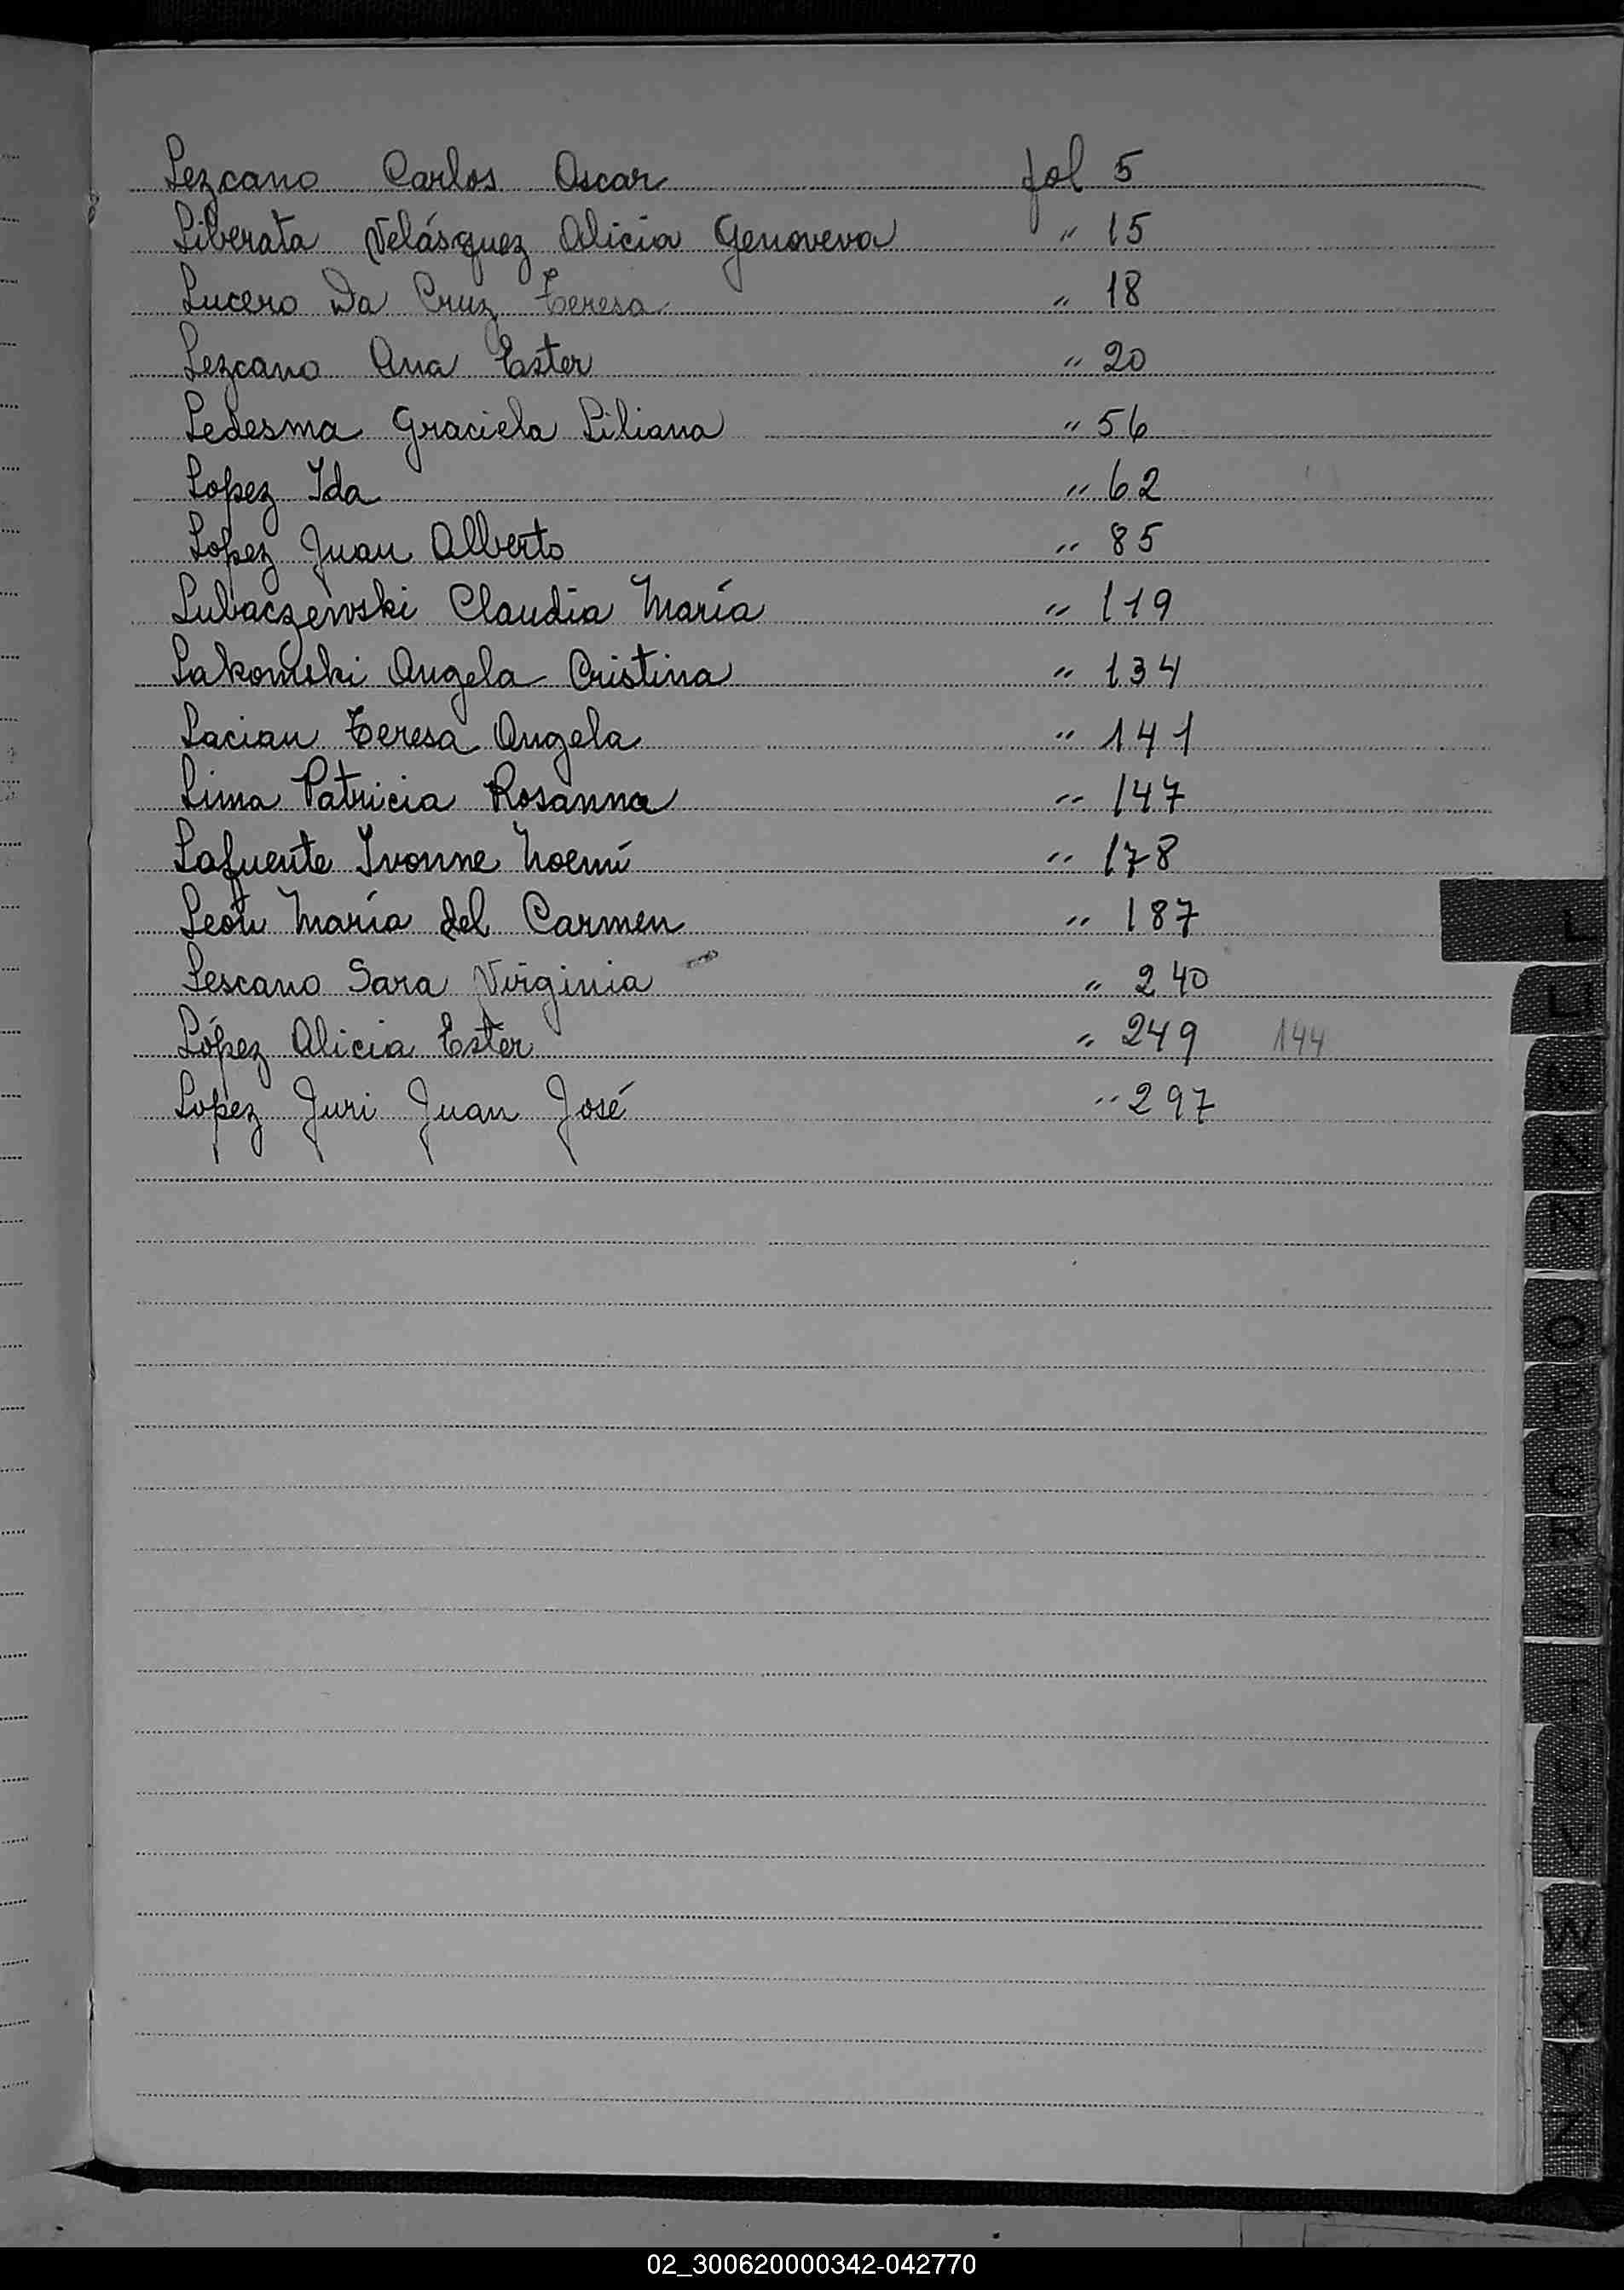 Lezcano Carlos Oscar fol 5
Liberata Velásquez Alicia Genoveva " 15
Lucero Da Cruz Teresa " 18
Lezcano Ana Ester " 20
Ledesma Graciela Liliana " 56
Lopez Ida " 62
Lopez Juan Alberto " 85
Lubaczewski Claudia María " 119
Lakomski Angela Cristina " 134
Lacian Teresa Angela " 141
Lima Patricia Rosanna " 147
Lafuente Ivonne Noemí " 178
León María del Carmen " 187
Lescano Sara Virginia " 240
López Alicia Ester " 249 144
Lopez Juri Juan José " 297
L
LL
M
N
Ñ
O
P
Q
R
S
T
U
V
W
X
Y
Z
02_300620000342-042770